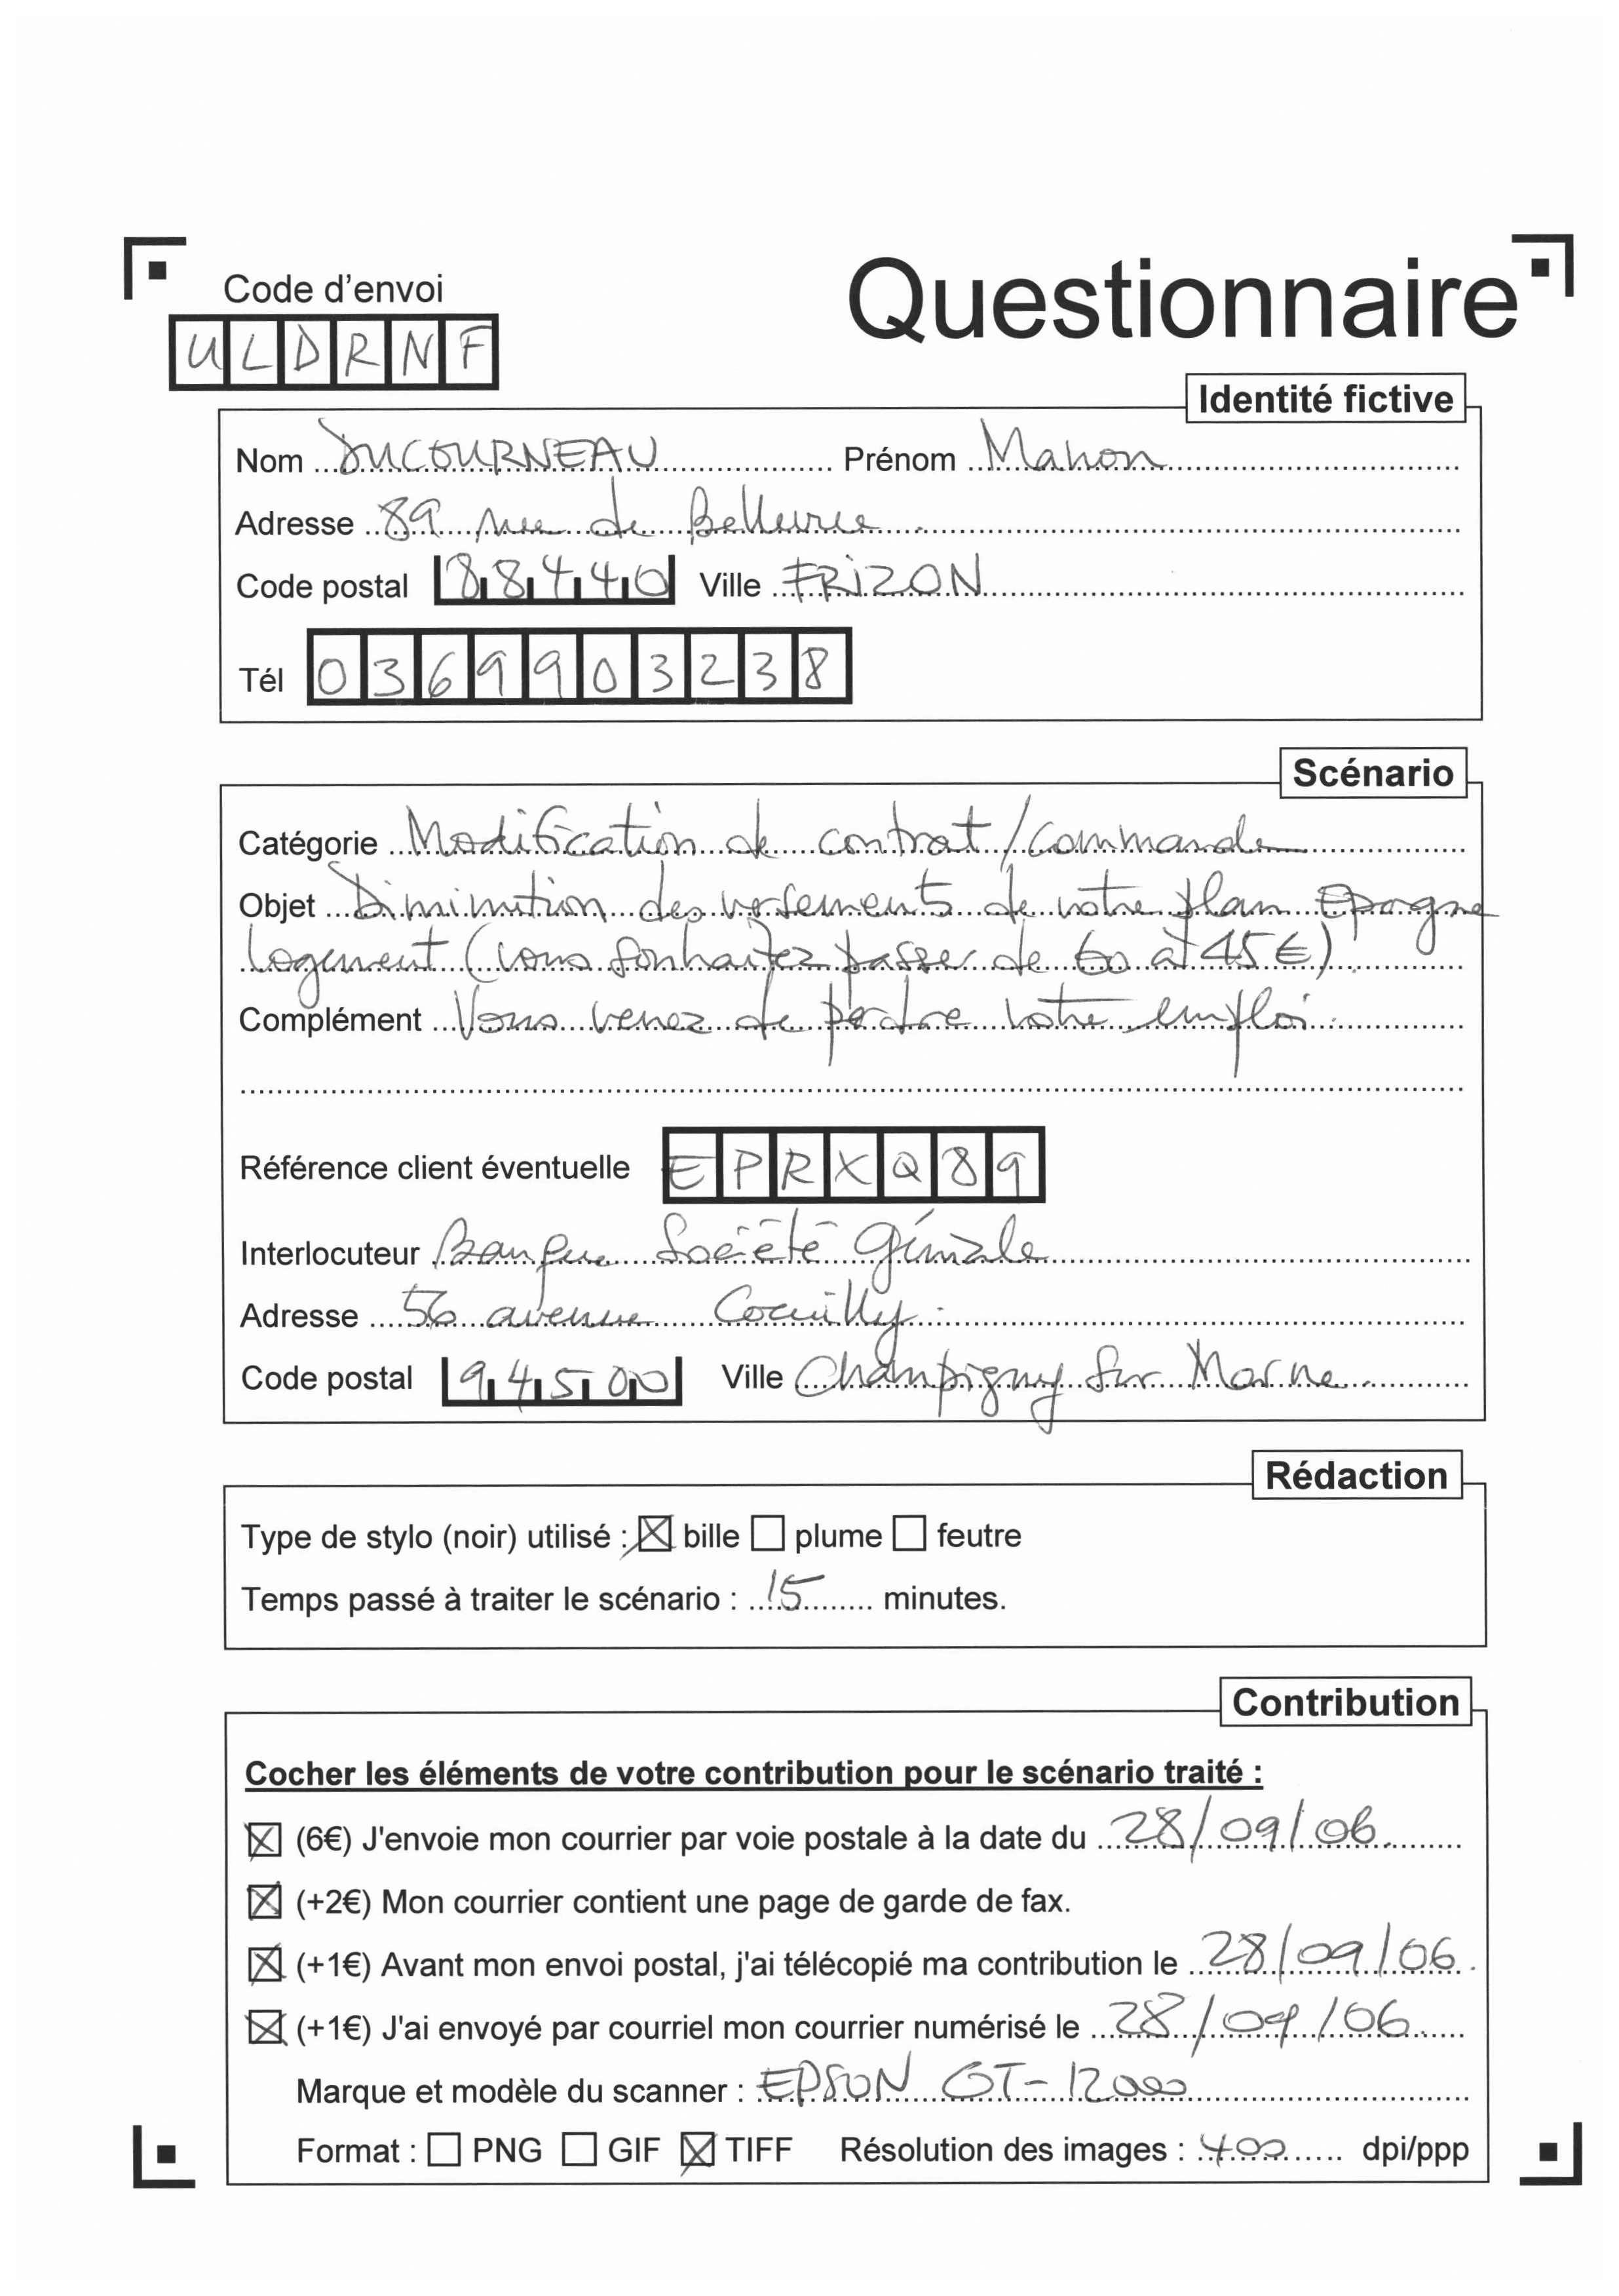 Code d'envoi
Questionnaire
ULDRNF
Identité fictive
Nom DUCOURNEAU Prénom Mahon
Adresse 89 rue de Bellevue.
Code postal 88440 Ville FRIZON
Tél 0369903238
Scénario
Catégorie Modification de contrat/commande
Objet Diminution des versements de votre plan Epargne
logement (vous souhaitez passer de 60 à 45 €).
Complément Vous venez de perdre votre emploi.
Référence client éventuelle EPRXQ89
Interlocuteur Banque Société Générale
Adresse 56 avenue
Code postal 94500 Ville Champigny Sur Marne.
Rédaction
Type de stylo (noir) utilisé : bille plume feutre
Temps passé à traiter le scénario : 15 minutes.
Contribution
Cocher les éléments de votre contribution pour le scénario traité :
(6€) J'envoie mon courrier par voie postale à la date du 28/09/06.
(+2€) Mon courrier contient une page de garde de fax.
(+1€) Avant mon envoi postal, j'ai télécopié ma contribution le 28/09/06.
(+1€) J'ai envoyé par courriel mon courrier numérisé le 28/09/06.
Marque et modèle du scanner : EPSON GT-12000
Format : PNG GIF TIFF Résolution des images : 400 dpi/ppp